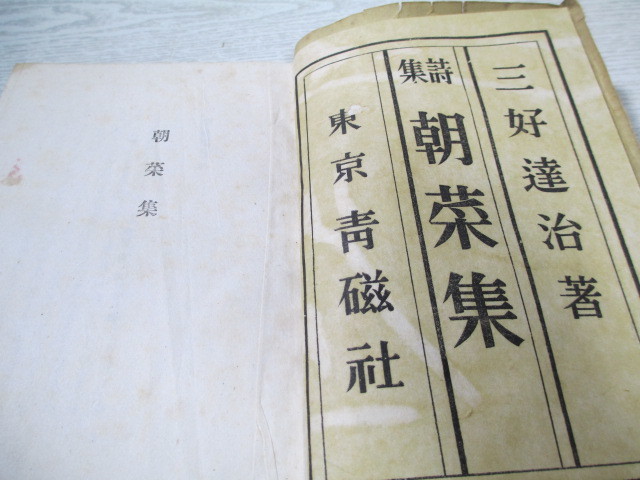 三好達治著
詩集
朝菜集
東京青磁社
朝菜集